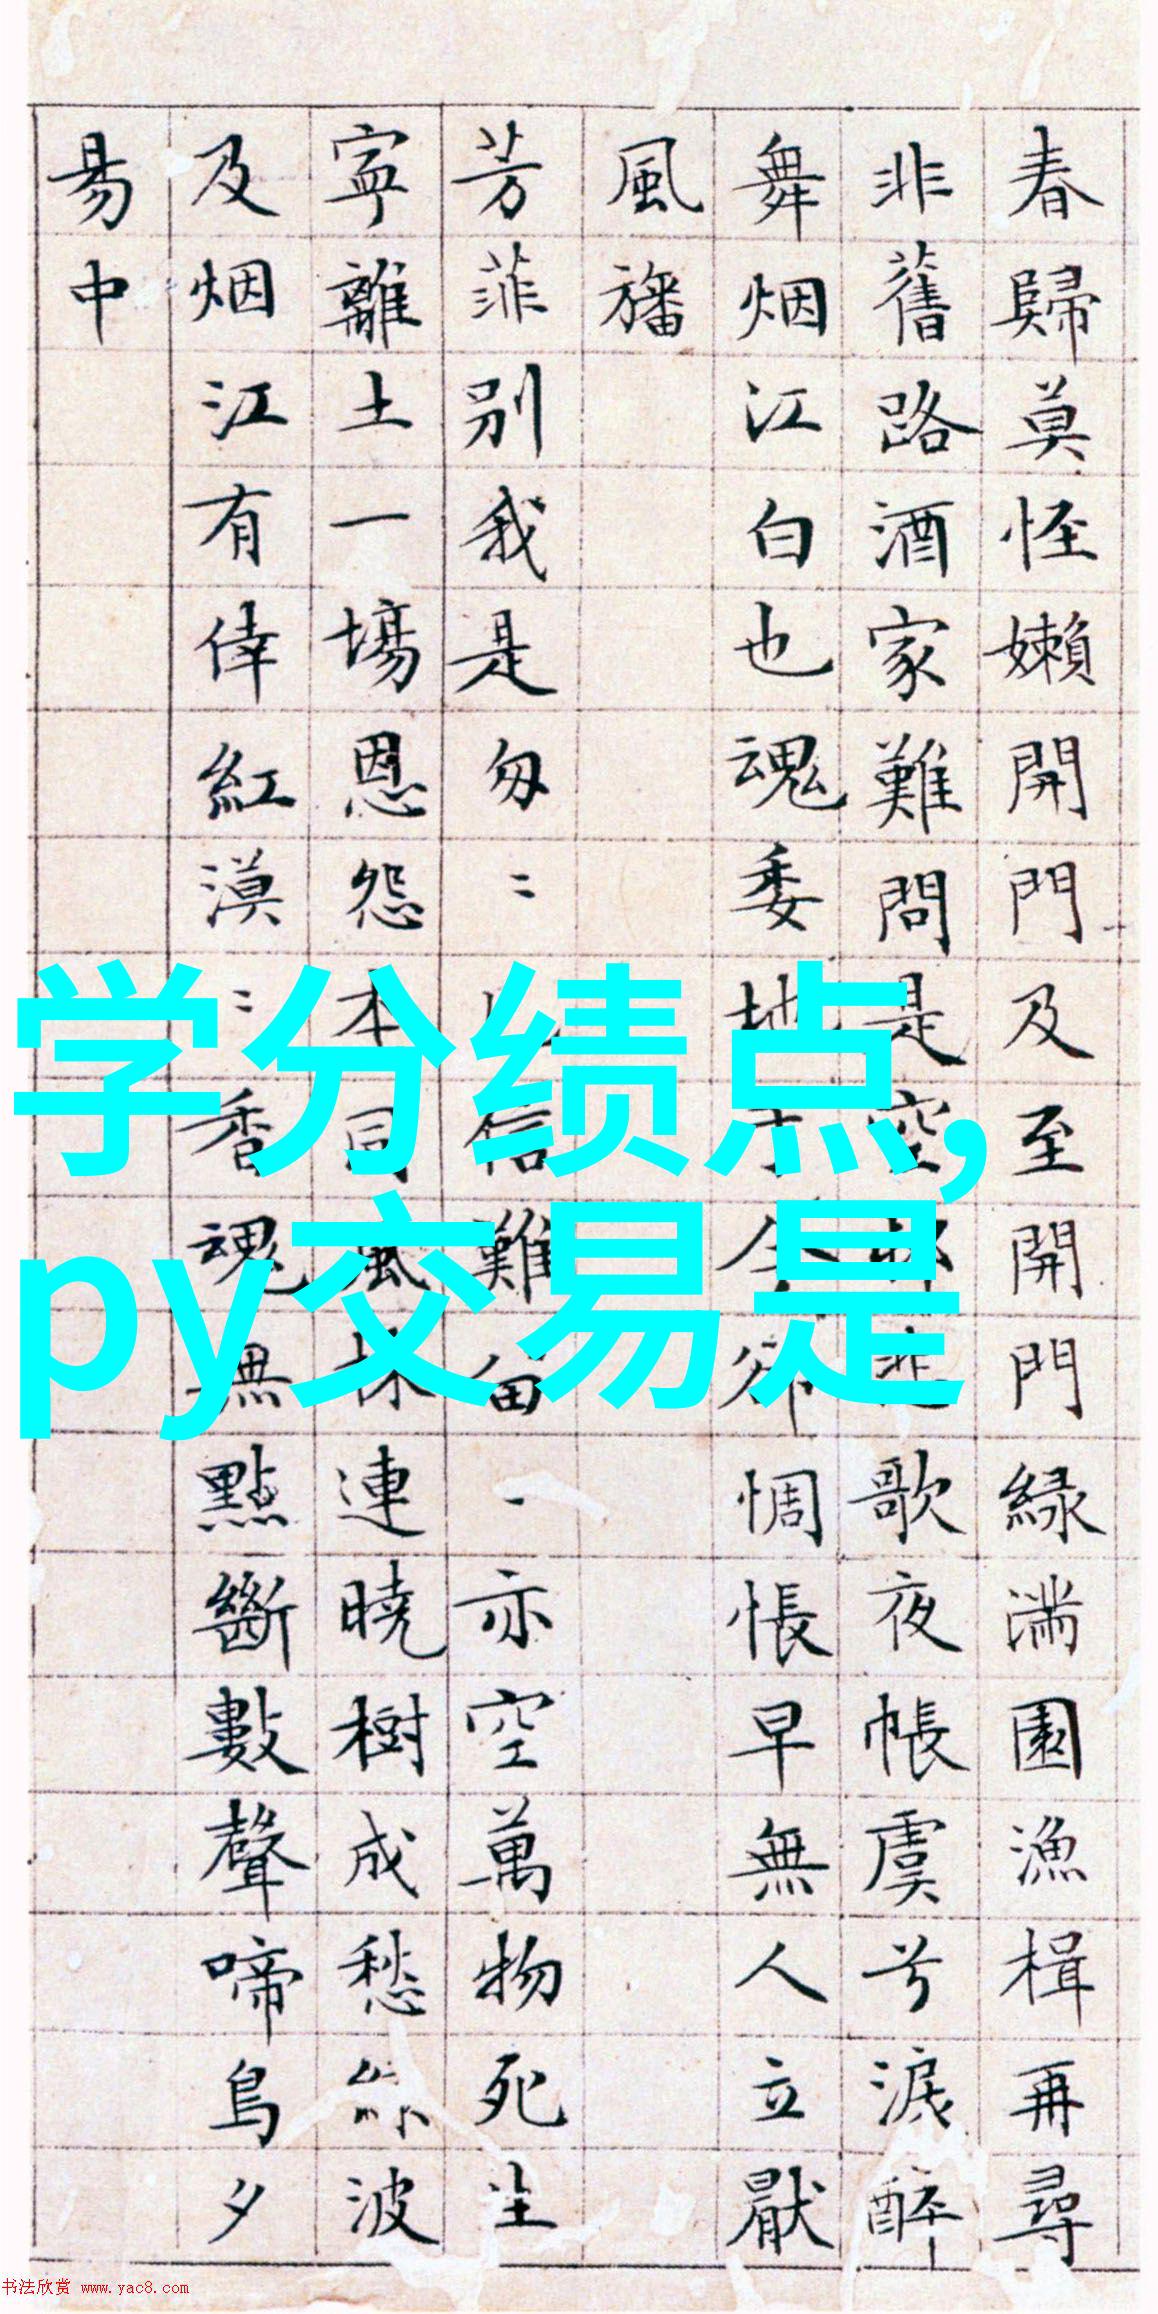 春歸莫怪嬾開門及至開門緑滿園漁楫再尋
非舊路酒家難問是空邨悲歌夜帳虞兮淚醉
舞烟江白也魂委地于今卻惆悵早無人立厭
風旛
芳菲別我是匆〻信難留一亦空萬物死生
寧離土一場恩怨本同風株連曉樹成愁綠波
及烟江有倖紅漠〻香魂無點斷數聲啼鳥夕
易中
学分绩点,
py交易是
书法欣赏 www.yac8.com